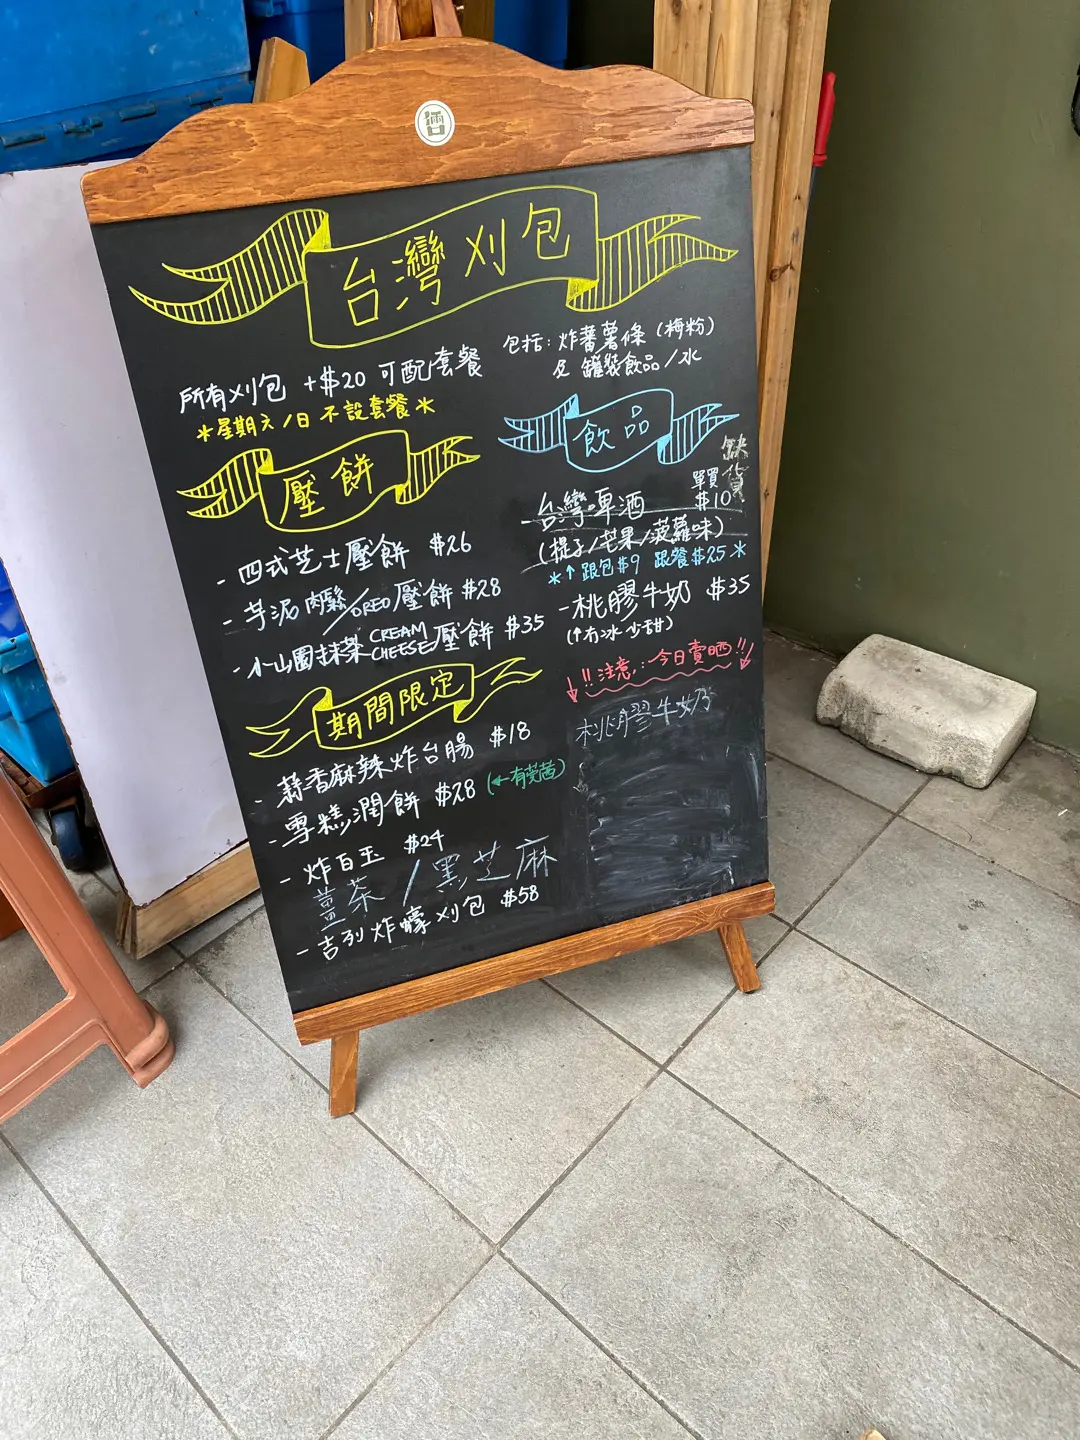 台灣刈包
所有刈包 +$20 可配套餐
*星期六/日 不設套餐*
包括: 炸蕃薯條 (梅粉)
及 罐裝飲品/水
壓餅
- 四式芝士壓餅 $26
- 芋泥肉鬆/OREO壓餅 $28
- 小山園抹茶CREAM CHEESE壓餅 $35
期間限定
- 蒜香麻辣炸台腸 $18
- 雪糕潤餅 $28 (←有芫茜)
- 炸百玉 $24
薑茶/黑芝麻
- 吉列炸蠔刈包 $58
飲品
缺貨
- 台灣啤酒 單買 $10
(提子/芒果/菠蘿味)
*↑跟包$9 跟餐$25*
- 桃膠牛奶 $35
(↑冇冰 少甜)
↓!!注意:今日賣晒!!↓
桃膠牛奶